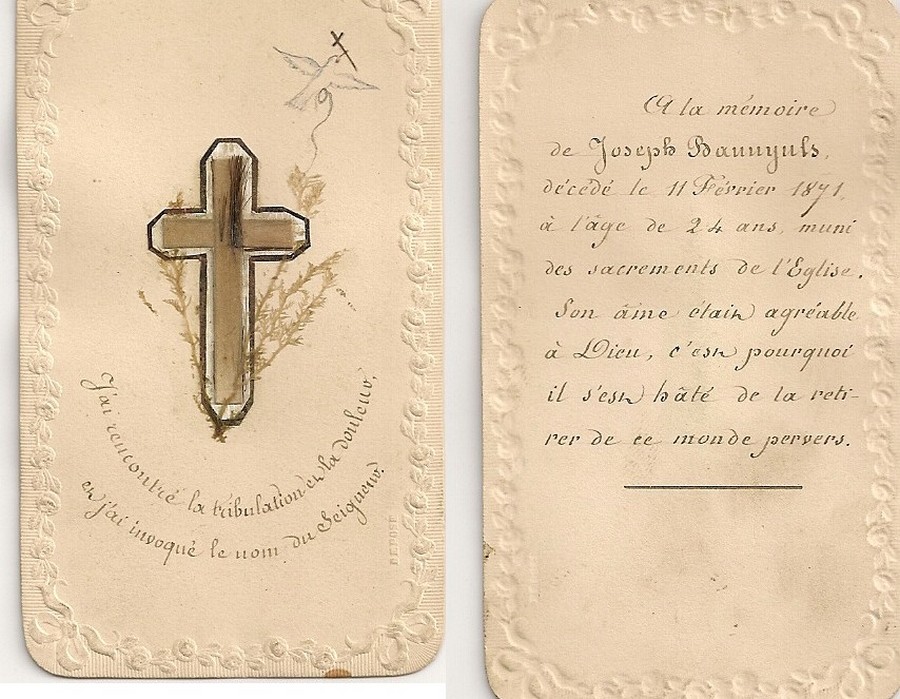 J'ai rencontré la tribulation et la douleur,
et j'ai invoqué le nom du Seigneur.
DEPOSÉ
A la mémoire
de Joseph Bauuyuls,
décédé le 11 Février 1871,
à l'âge de 24 ans, muni
des sacrements de l'Eglise.
Son âme était agréable
à Dieu, c'est pourquoi
il s'est hâté de la reti-
rer de ce monde pervers.